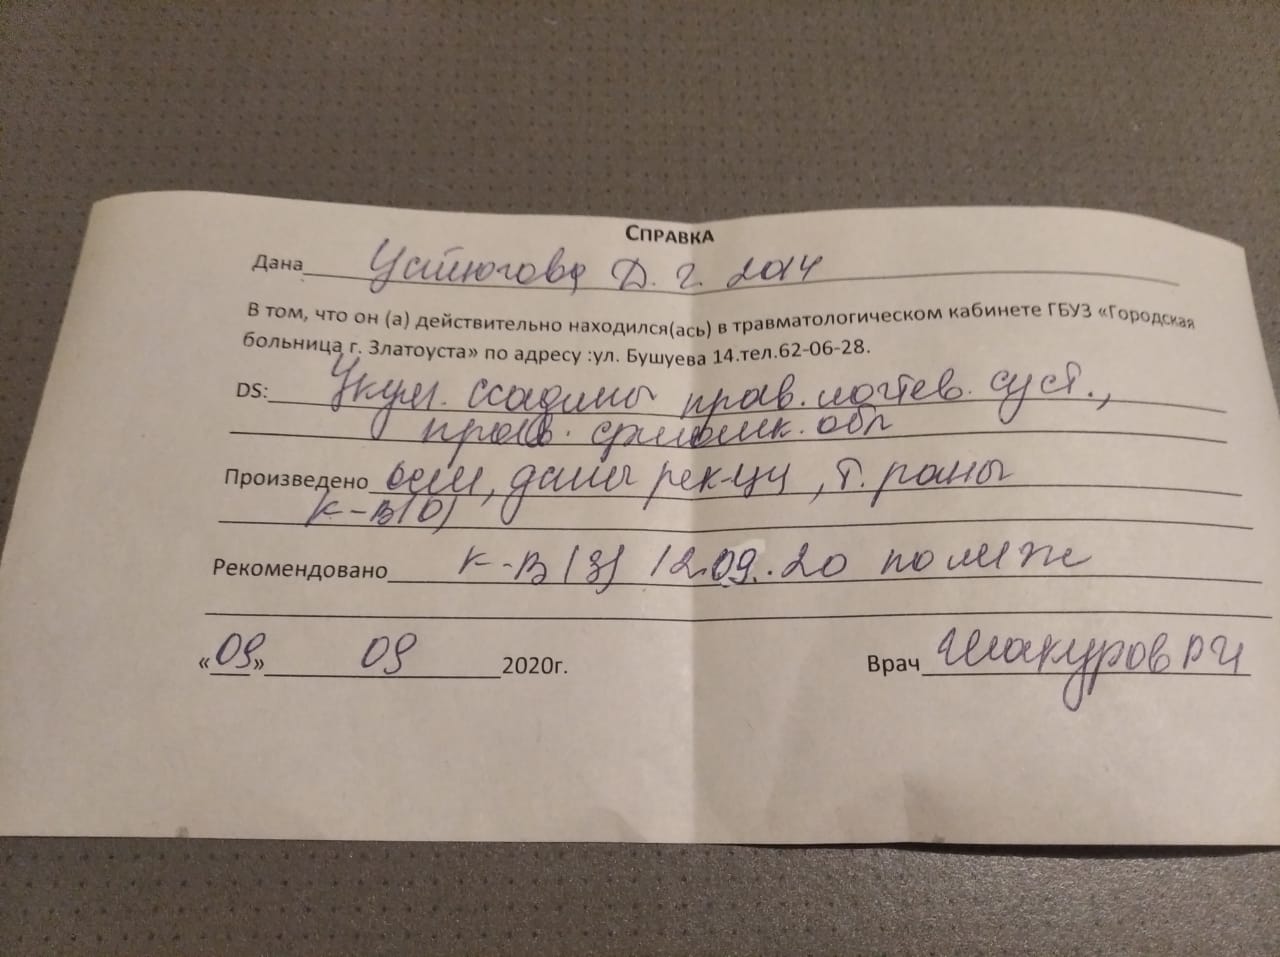 Справка
Дана Устюгова Д. г. 2014
В том, что он (а) действительно находился(ась) в травматологическом кабинете ГБУЗ «Городская
больница г. Златоуста» по адресу :ул. Бушуева 14.тел.62-06-28.
DS: Укуш. ссадины прав. локтев. суст.,
прав. обл
Произведено осм, даны рек-ции, т. раны
К-В(0)
Рекомендовано К-В (3) 12.09.20 по м/ж
«09» 09 2020г.
Врач Шакуров РИ